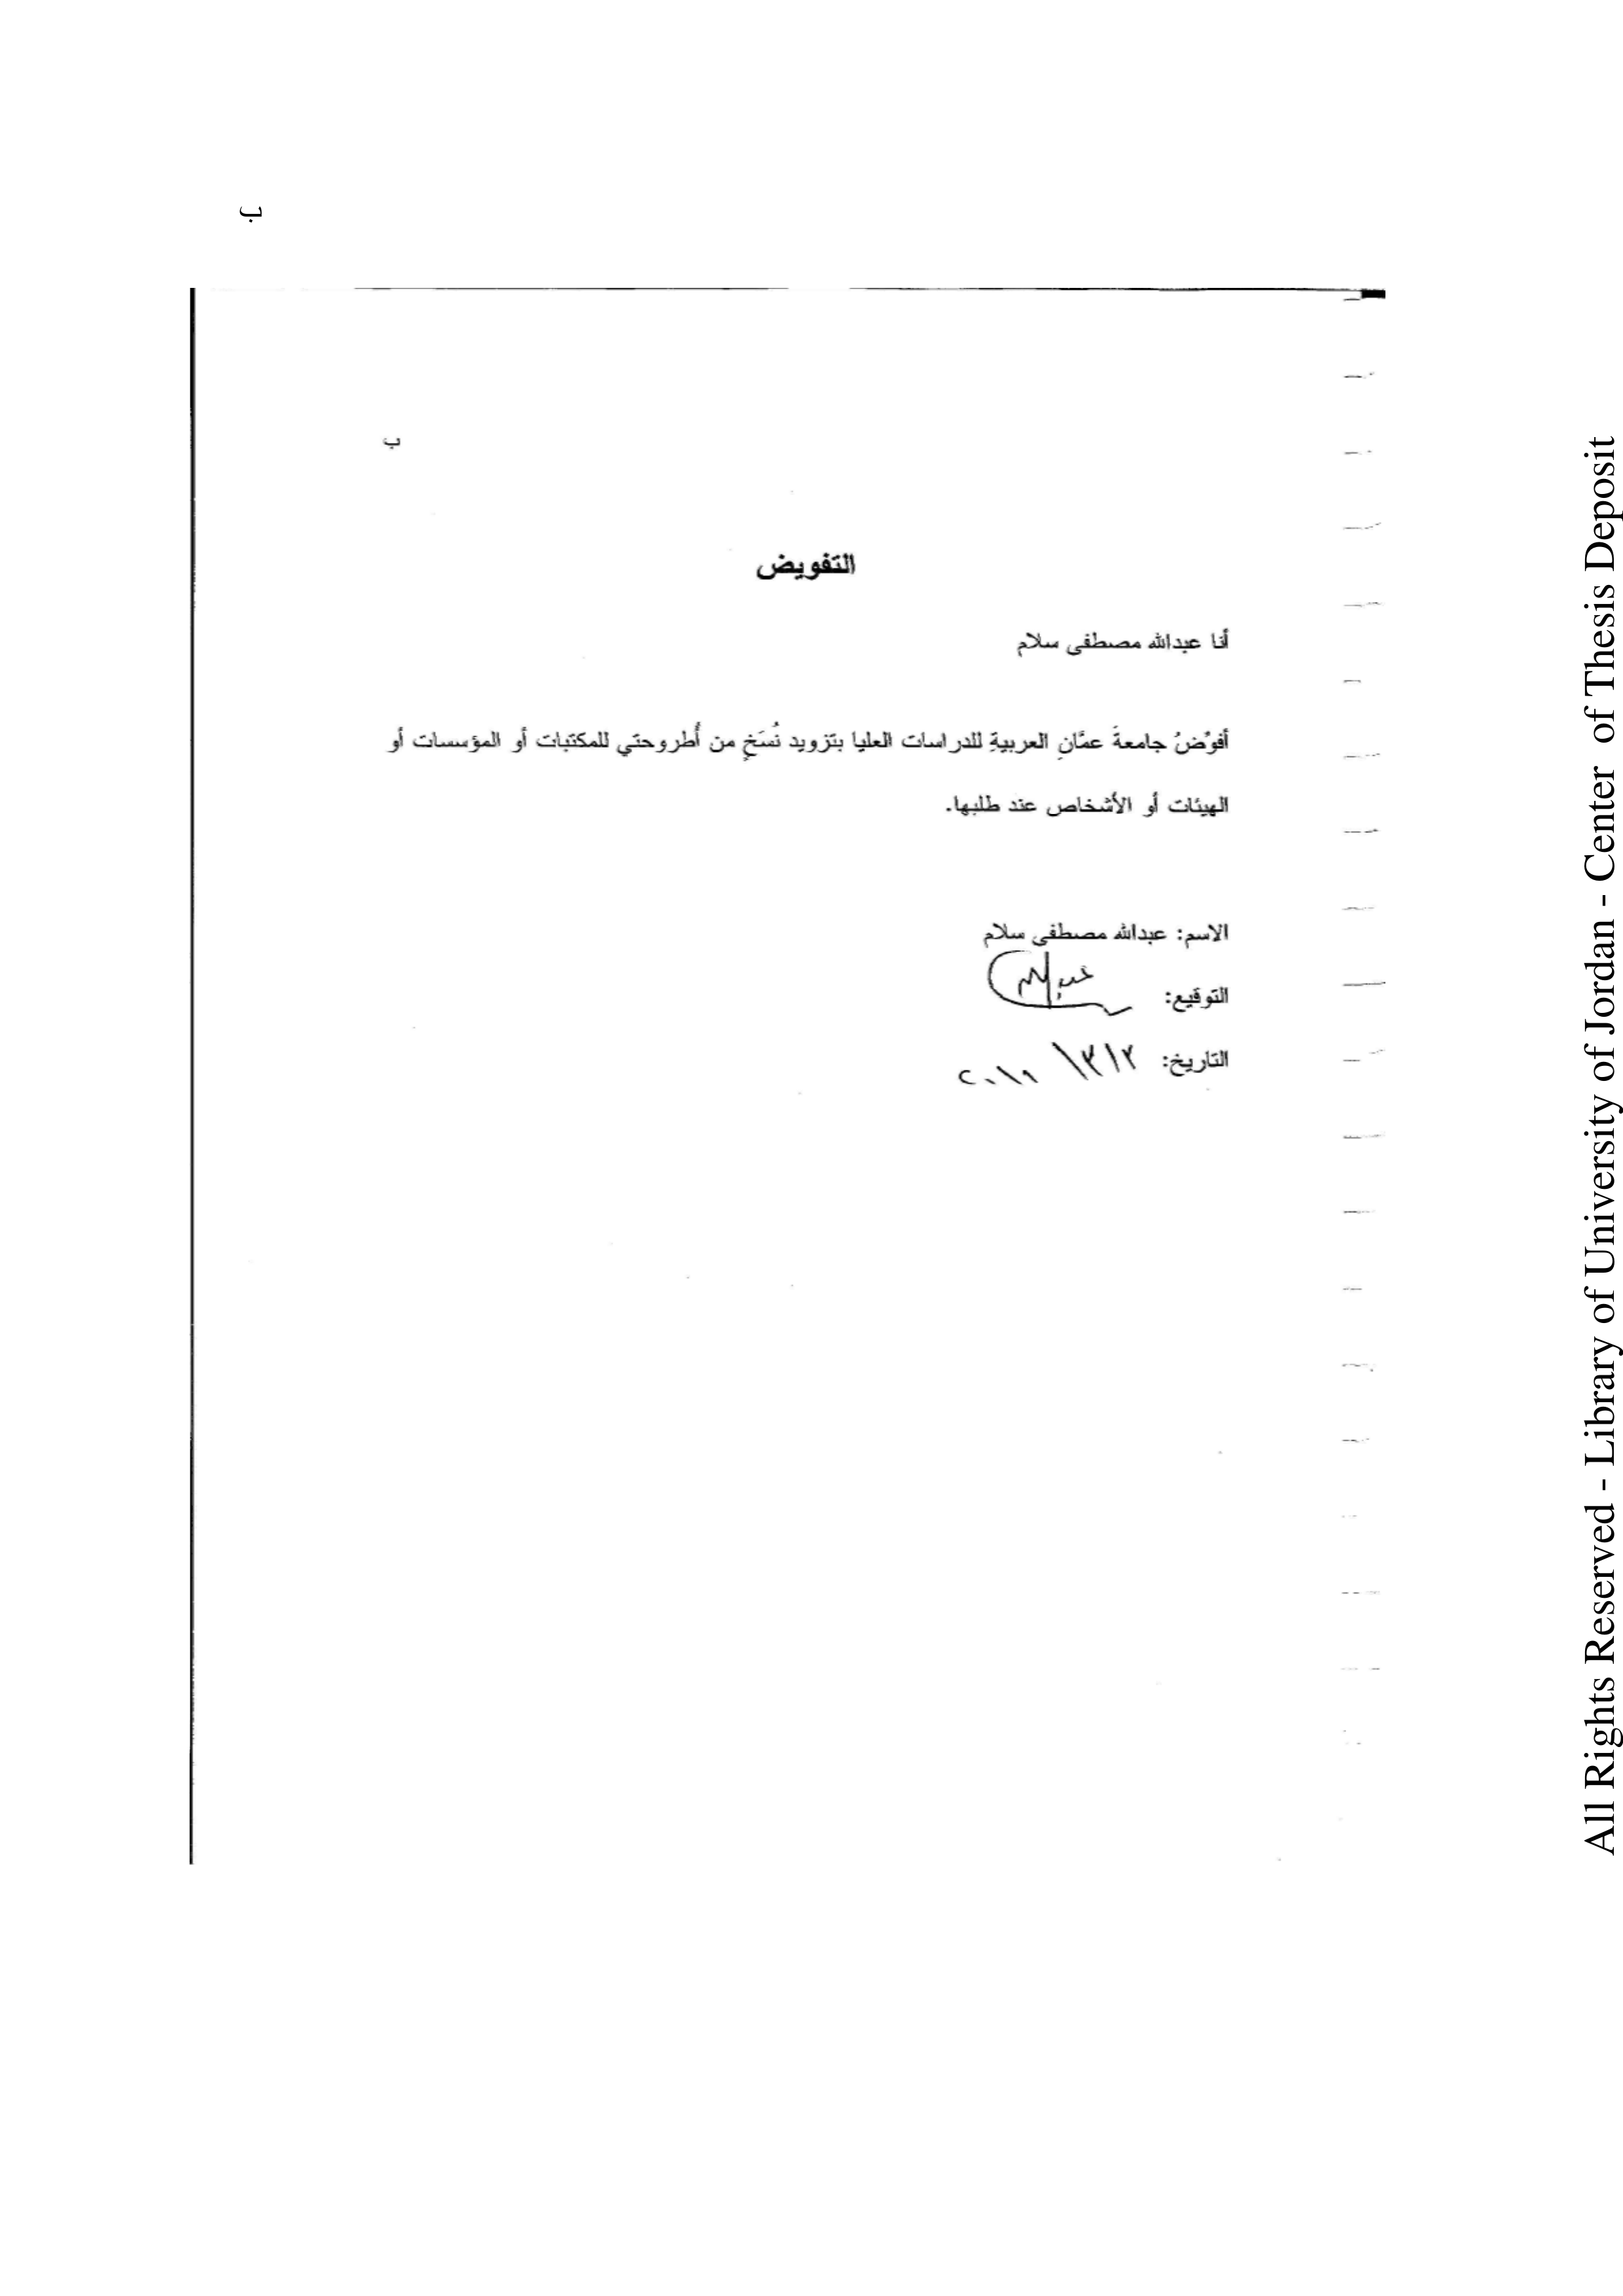 ب
ب
التفويض
أنا عبدالله مصطفى سلام
أفوّضُ جامعةَ عمَّانِ العربيةِ للدراسات العليا بتزويد نُسَخٍ من أُطروحتي للمكتبات أو المؤسسات أو
الهيئات أو الأشخاص عند طلبها.
الاسم: عبدالله مصطفى سلام
التوقيع:
التاريخ:
All Rights Reserved - Library of University of Jordan - Center of Thesis Deposit